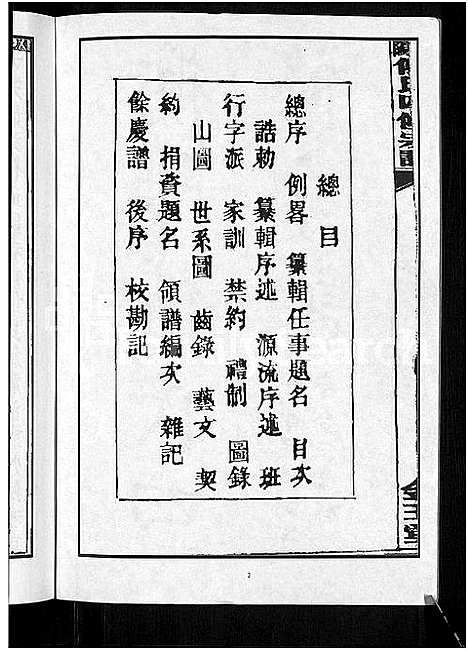 總目
總序　例畧　纂輯任事題名　目次
誥勅　纂輯序述　源流序述　班
行字派　家訓　禁約　禮制　圖錄
山圖　世系圖　齒錄　藝文　契
約　捐資題名　領譜編次　雜記
餘慶譜　後序　校勘記